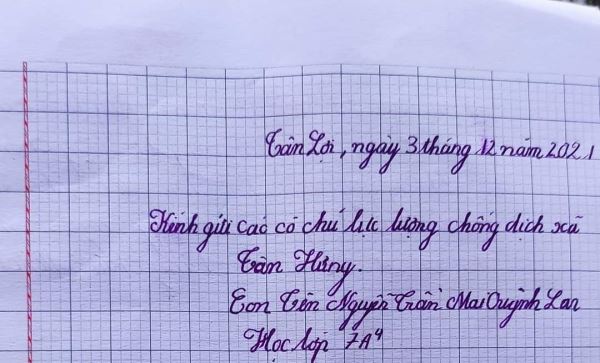 Tân Lợi, ngày 3 tháng 12 năm 2021
Kính gửi các cô chú lực lượng chống dịch xã
Tân Hưng.
Con tên Nguyễn Trần Mai Quỳnh Lan
Học lớp 7A4